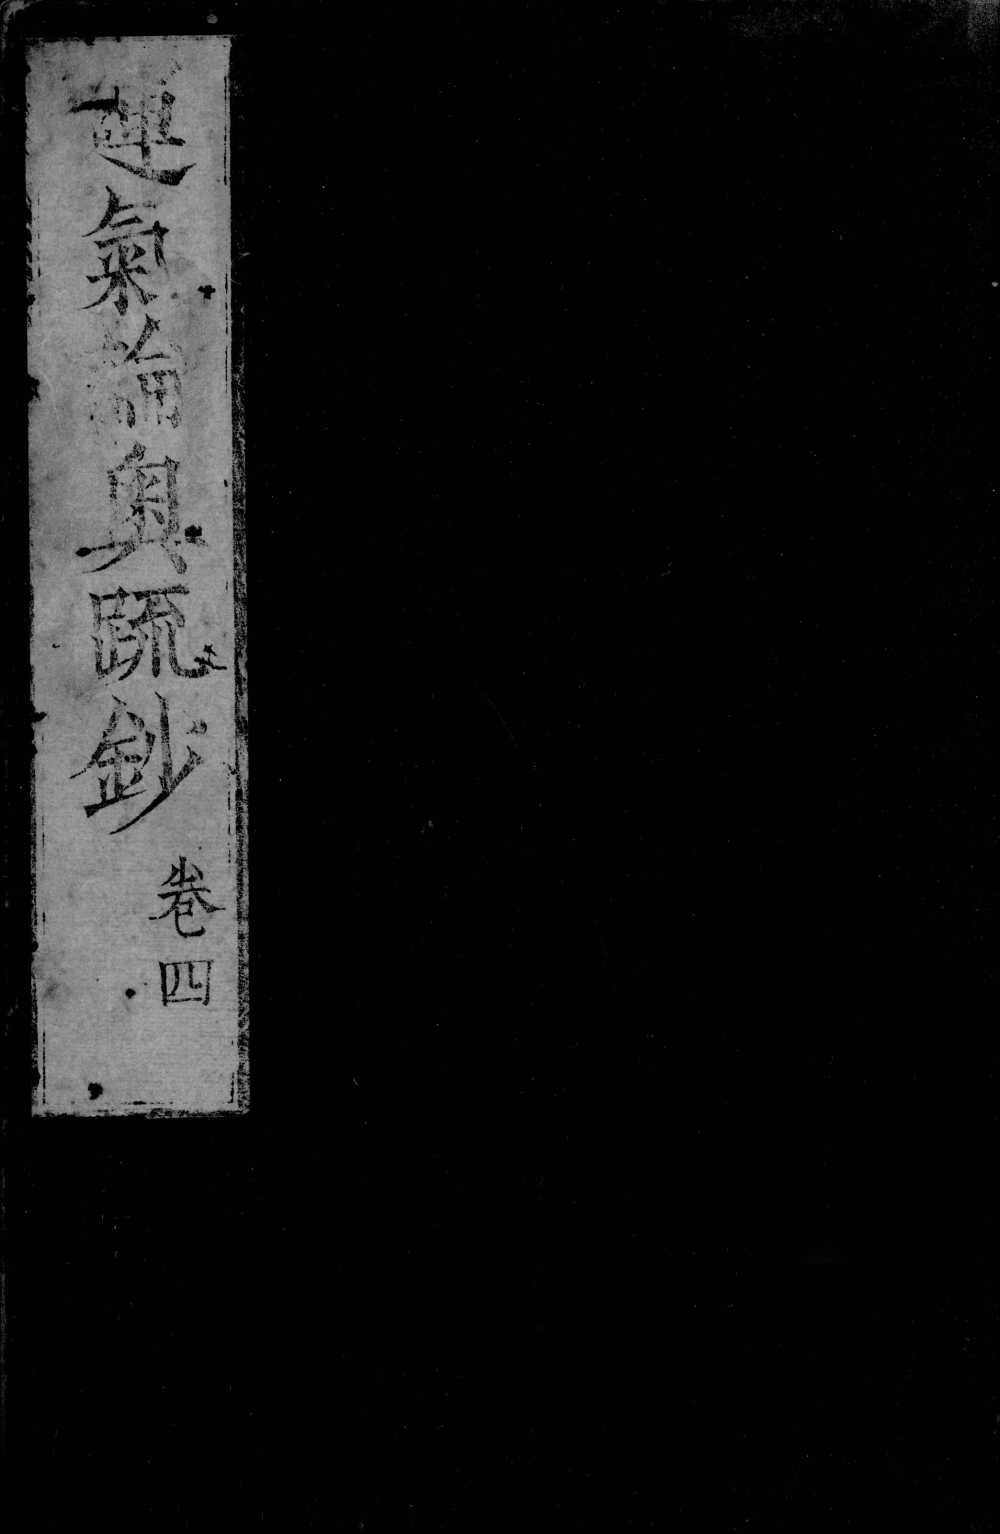 運氣論奧疏鈔
卷四